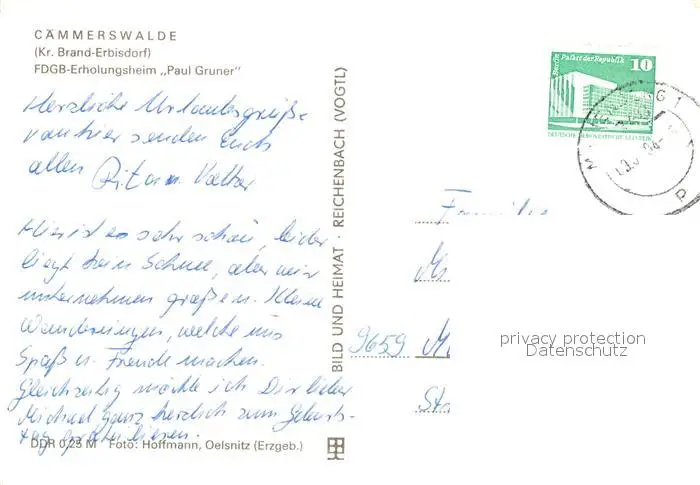 CÄMMERSWALDE
(Kr. Brand-Erbisdorf)
FDGB-Erholungsheim „Paul Gruner"
Herzliche Urlaubsgrüße
von hier senden Euch
allen Rita u. Walter
Hier ist es sehr schön, leider
liegt kein Schnee, aber wir
unternehmen große u. kleine
Wanderungen, welche uns
Spaß u. Freude machen.
Gleichzeitig möchte ich Dir lieber
Michael ganz herzlich zum Geburts-
tag gratulieren.
DDR 0,25 M Foto: Hoffmann, Oelsnitz (Erzgeb.)
BILD UND HEIMAT · REICHENBACH (VOGTL)
Berlin Palast der Republik
10
DEUTSCHE DEMOKRATISCHE REPUBLIK
Familie
9659
Str
privacy protection
Datenschutz